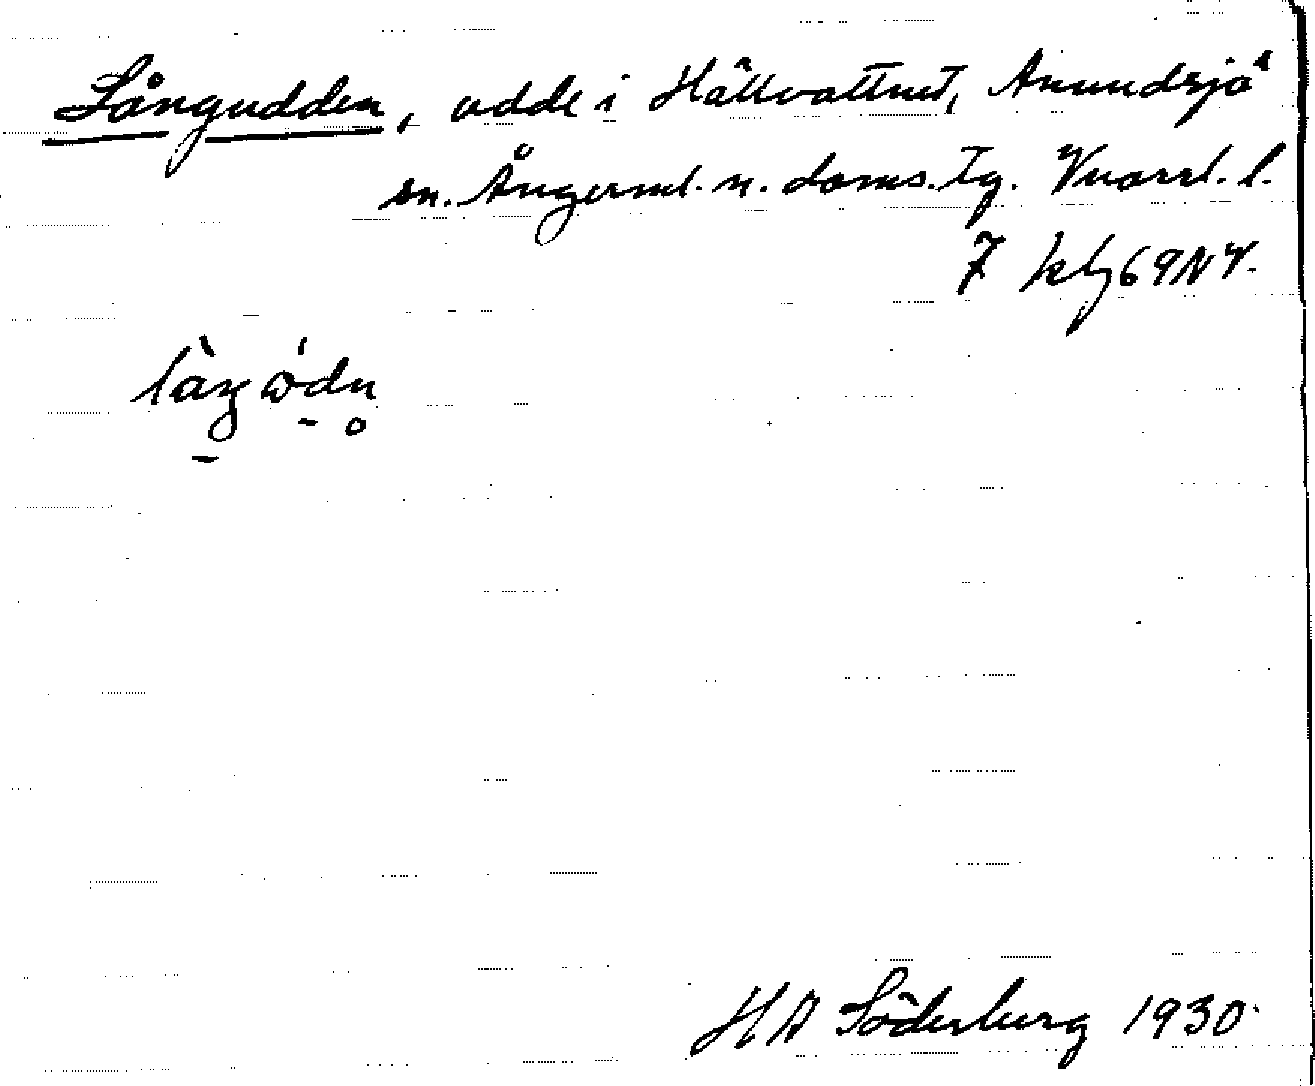 Långudden, udde i Hällvattnet, Anundsjö
sn. Ångerml. n. doms. tg. Vnorrl. l.
7 kbl 69NV.
HA Söderberg 1930.